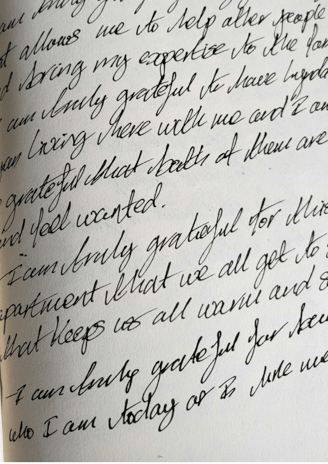 am truly
it allows me to help other people
d bring my expertise to the
I am truly grateful to have
living here with me and I am
grateful that both of them are
and feel wanted.
I am truly grateful for this
apartment that we all get to
that keeps us all warm and
I am truly grateful for
who I am today as is